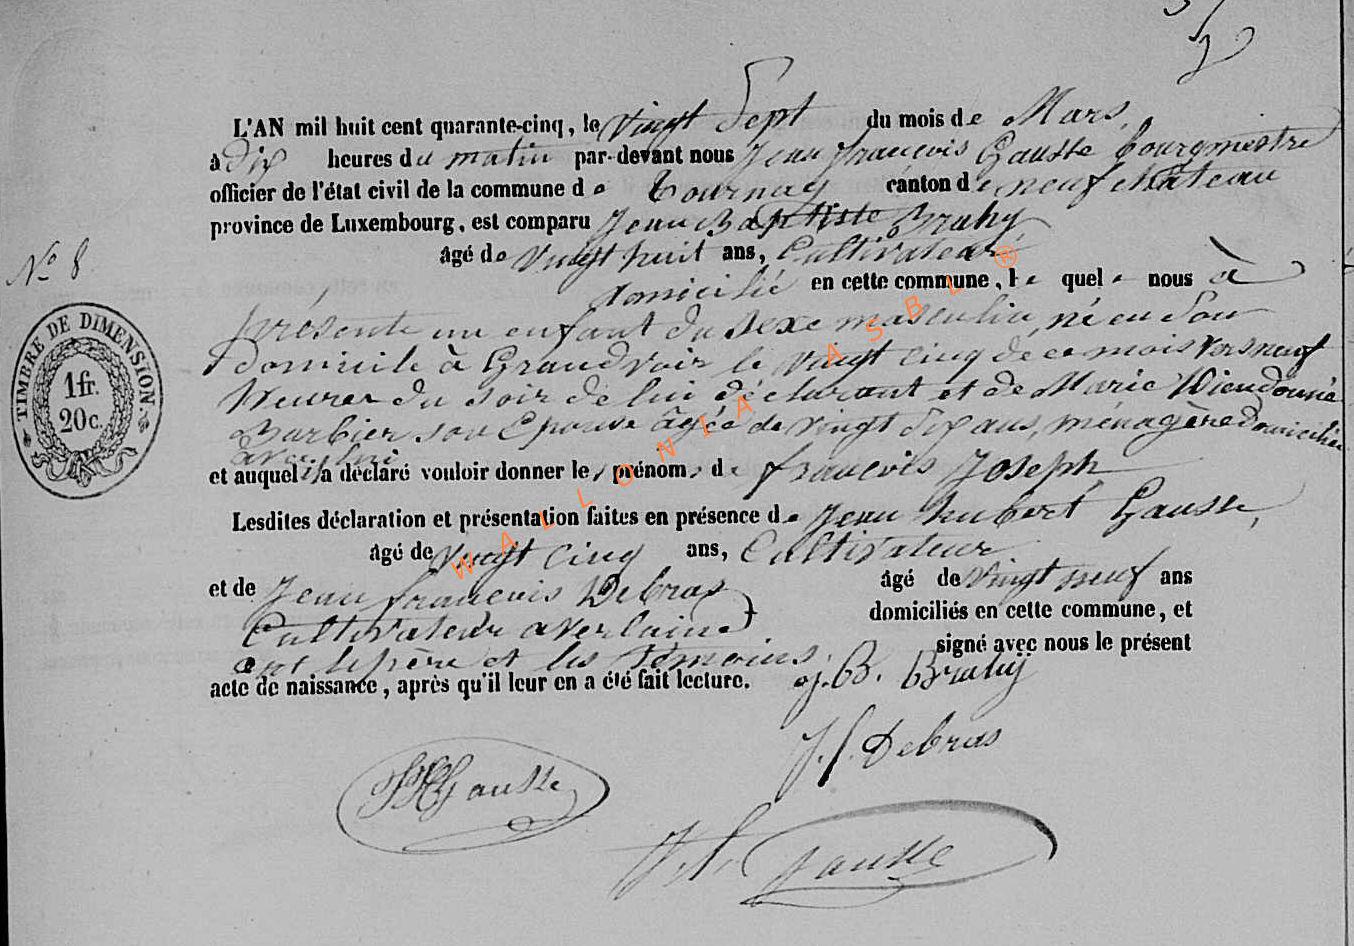 L'AN mil huit cent quarante-cinq, le vingt Sept du mois de Mars,
à dix heures du matin par-devant nous Jean francois Gausse bourgmestre
officier de l'état civil de la commune de Tournay canton de neufchâteau
province de Luxembourg, est comparu Jean Baptiste Brahy
âgé de vingt huit ans, Cultivateur
N° 8
domicilié en cette commune, le quel nous à
présenté un enfant du sexe masculin, né en Son
domicile à Grandvoir le vingt cinq de ce mois vers neuf
heures du soir de lui déclarant et de Marie Dieudonnée
Barbier son Epouse âgée de vingt six ans, ménagère domiciliée
avec lui
et auquel il a déclaré vouloir donner les prénoms de francois Joseph
Lesdites déclaration et présentation faites en présence de Jean hubert Gausse,
âgé de vingt cinq ans, Cultivateur
et de Jean francois Debras âgé de vingt neuf ans
Cultivateur a verlaine domiciliés en cette commune, et
ont le père et les témoins signé avec nous le présent
acte de naissance, après qu'il leur en a été fait lecture. J. B. Brahy
J. f. Debras
JH Gausse
J. f. Gausse
TIMBRE DE DIMENSION
1 fr.
20 c.
WALLONIA ASBL ®